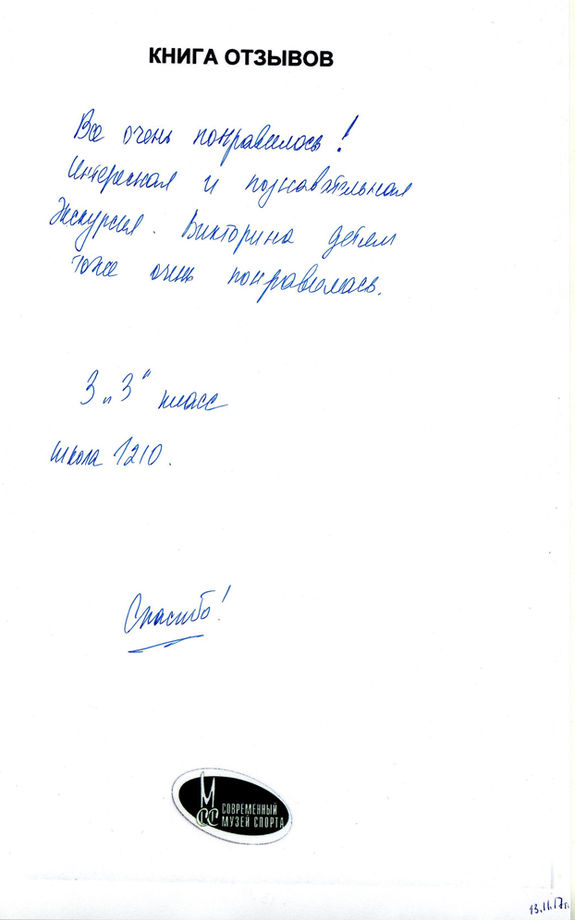 КНИГА ОТЗЫВОВ
Все очень понравилось!
Интересная и познавательная
Экскурсия. Викторина детям
тоже очень понравилась.
3 „З" класс
школа 1210.
Спасибо!
МСС
СОВРЕМЕННЫЙ
МУЗЕЙ СПОРТА
13.11.17г.